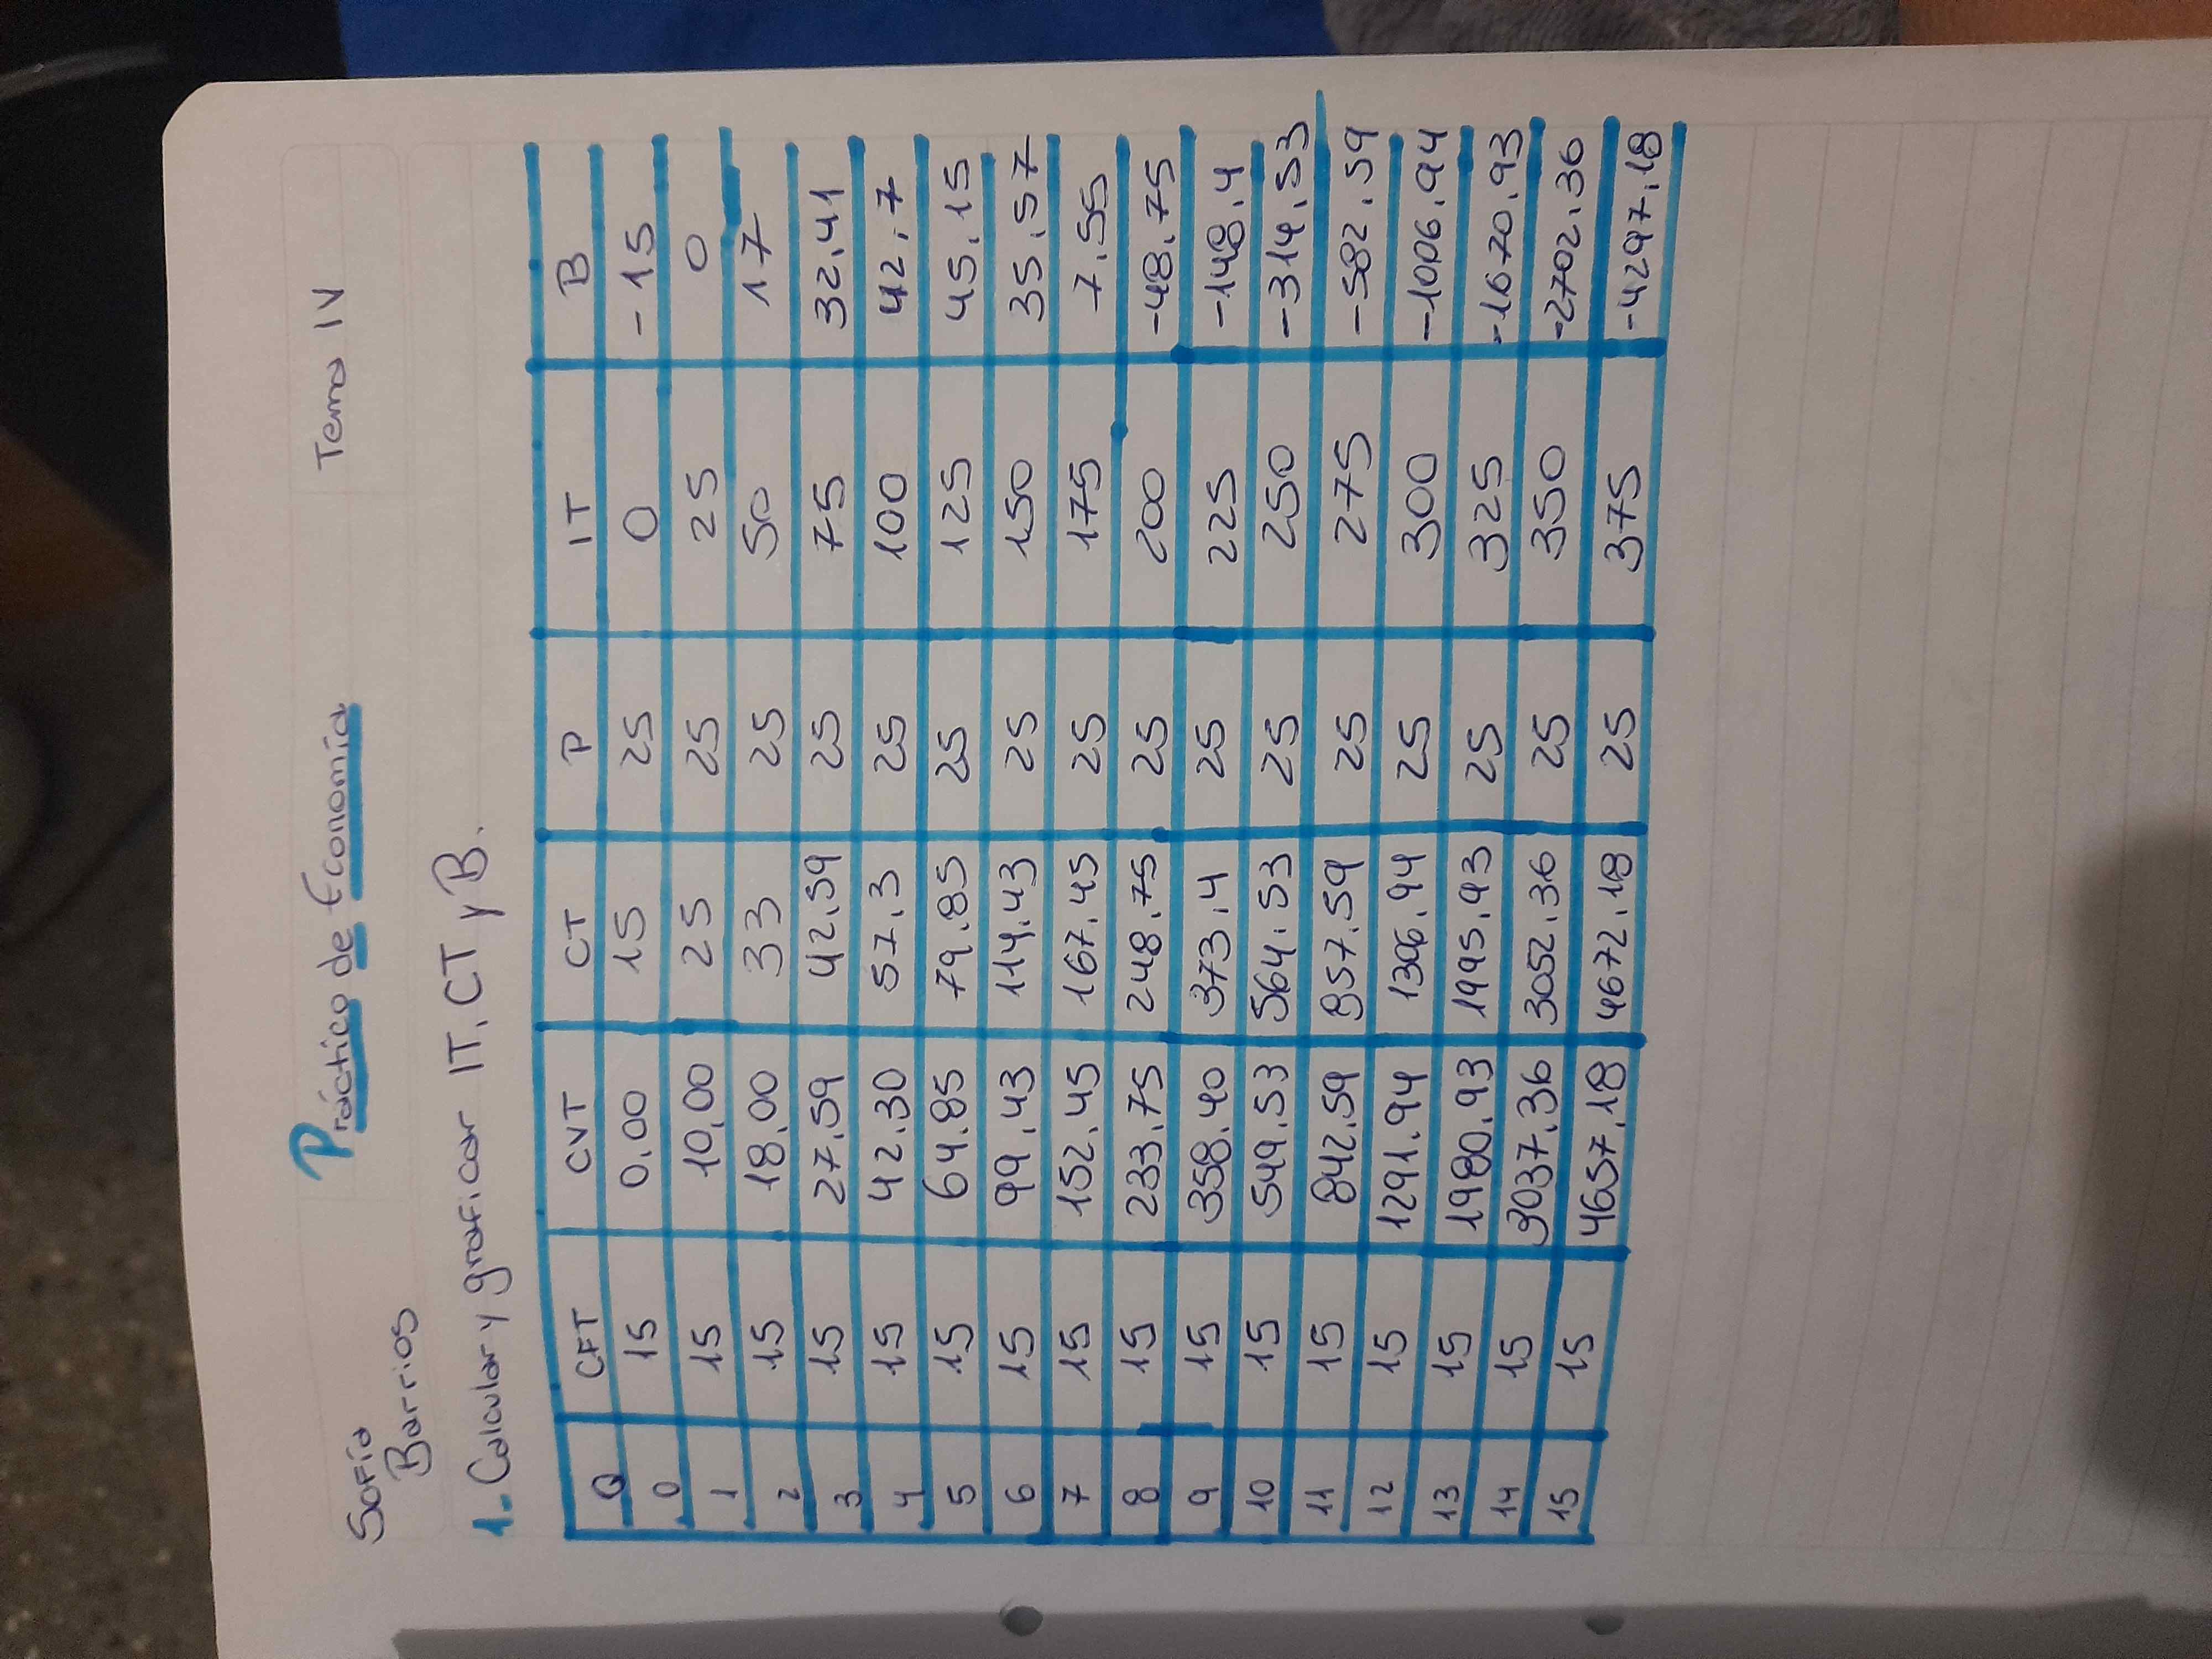 Sofía Barrios
Práctico de Economía
Tema IV
1- Calcular y graficar IT, CT y B.
Q CFT CVT CT P IT B
0 15 0.00 15 25 0 -15
1 15 10.00 25 25 25 0
2 15 18.00 33 25 50 17
3 15 27.59 42.59 25 75 32.41
4 15 42.30 57.3 25 100 42.7
5 15 64.85 79.85 25 125 45.15
6 15 99.43 114.43 25 150 35.57
7 15 152.45 167.45 25 175 7.55
8 15 233.75 248.75 25 200 -48.75
9 15 358.40 373.4 25 225 -148.4
10 15 549.53 564.53 25 250 -314.53
11 15 842.59 857.59 25 275 -582.59
12 15 1291.94 1306.94 25 300 -1006.94
13 15 1980.93 1995.93 25 325 -1670.93
14 15 3037.36 3052.36 25 350 -2702.36
15 15 4657.18 4672.18 25 375 -4297.18